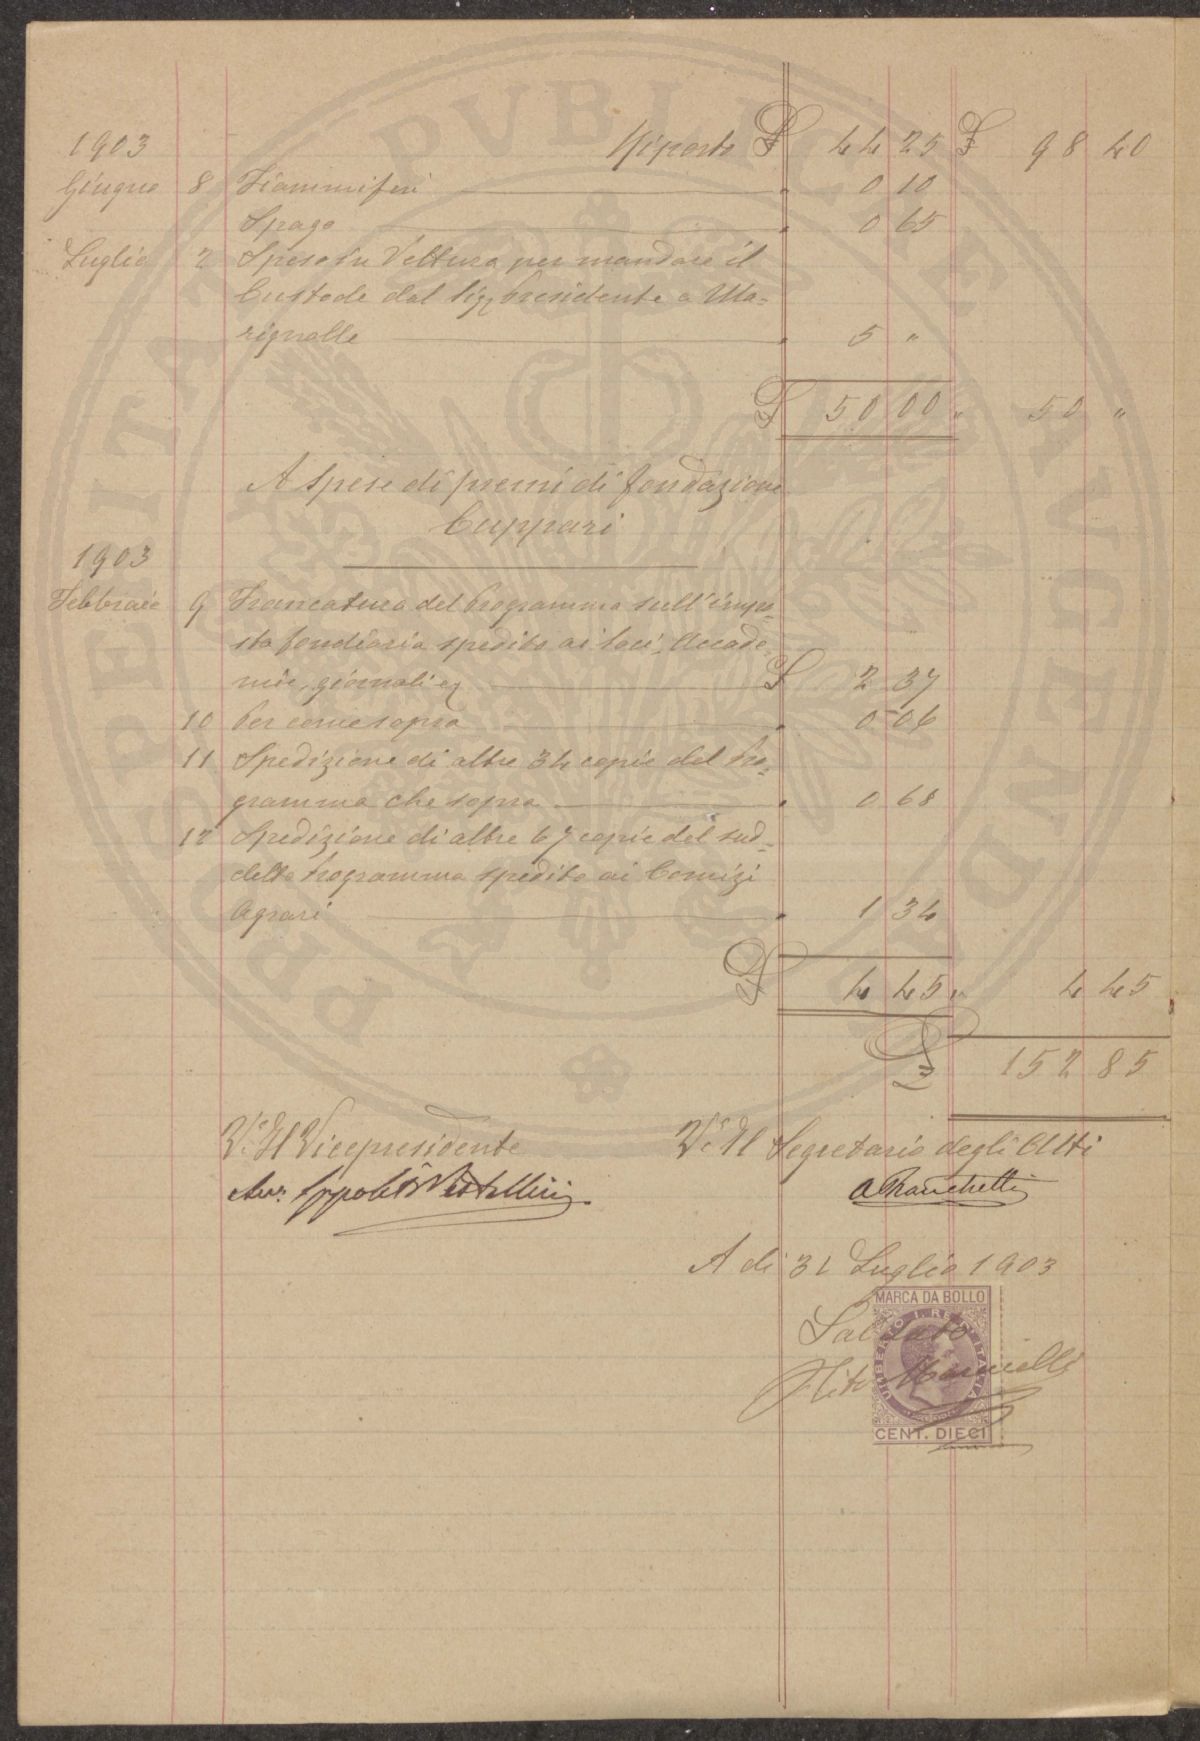 1903 Riporto £ 44 25 £ 98 40
Giugno 8 Fiammiferi " 0 10
Spago " 0 65
Luglio 2 Spese in Vettura per mandare il
Custode dal Sig. Presidente a Ma=
rignolle " 5 "
£ 50 00 " 50 "
A spese di premi di fondazione
Cuppari
1903
Febbraio 9 Francatura del Programma sull'impo=
sta fondiaria spedito ai Soci, Accade=
mie, giornali ec £ 2 37
10 Per come sopra " 0 06
11 Spedizione di altre 34 copie del Pro=
gramma che sopra " 0 68
12 Spedizione di altre 67 copie del sud=
detto Programma spedito ai Comizi
Agrari " 1 34
£ 4 45 " 4 45
£ 152 85
V.° Il Vicepresidente V.° Il Segretario degli Atti
Avv. Ippolito Pestellini
A di 31 Luglio 1903
MARCA DA BOLLO
Saldato
UMBERTO I. RE D'ITALIA
CENT. DIECI
PROSPERITATI PVBLICAE AVGENDAE